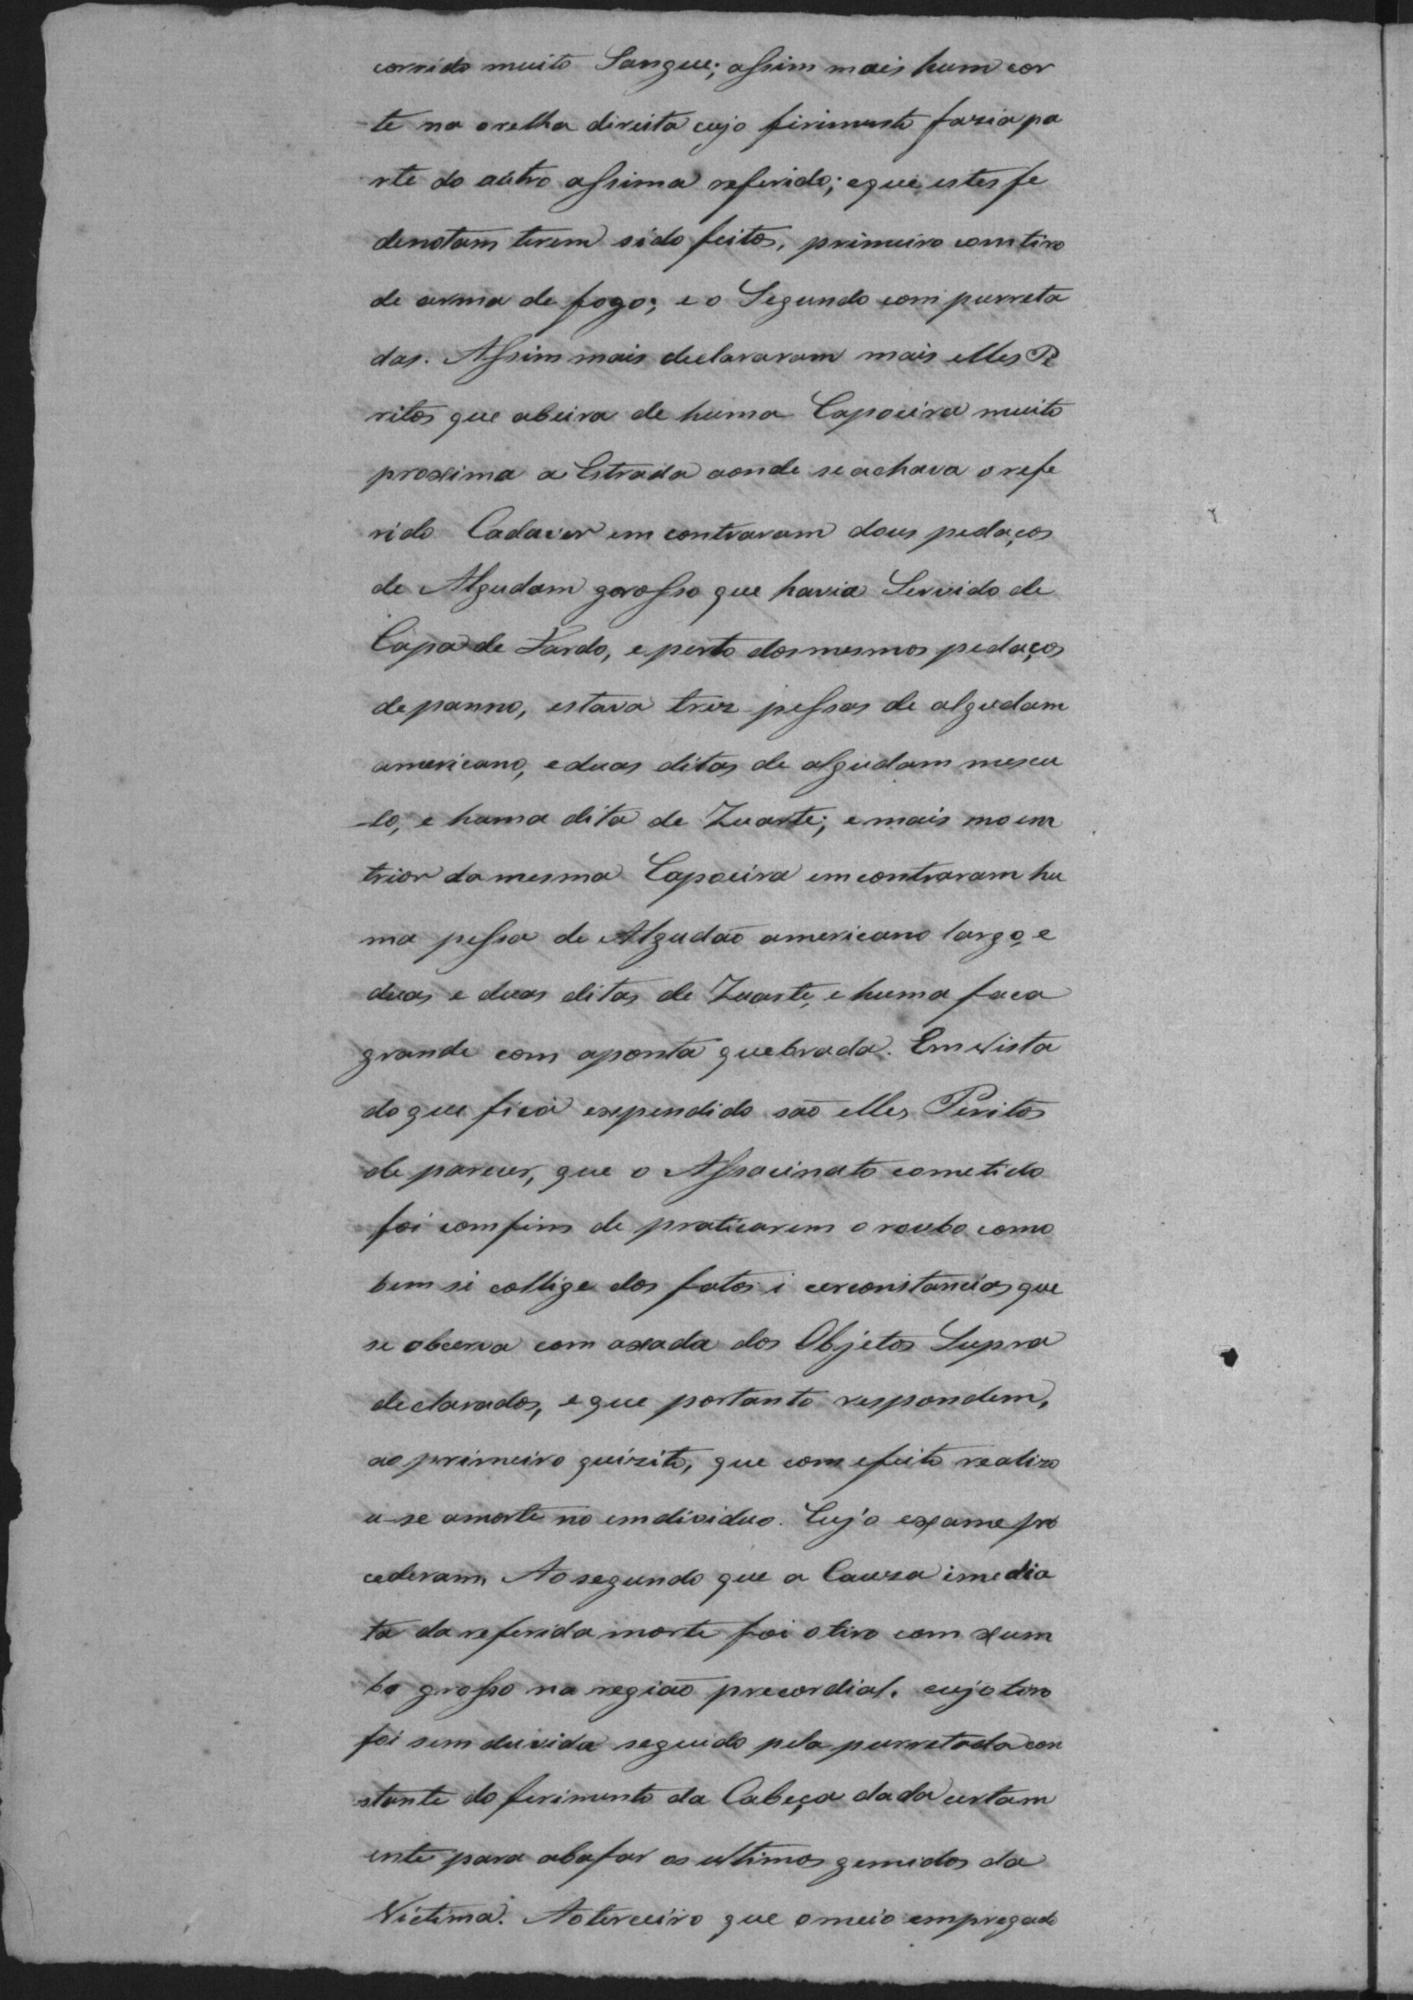 corrido muito Sangue; assim mais hum cor
te na orelha direita cujo firimento fazia pa
rte do aútro assima referido; e que estes fe
denotam terem sido feitos, primeiro com tiro
de arma de fogo; e o Segundo com purreta
das. Assim mais declararam mais elles Pe
ritos que abeira de huma Capoeira muito
proxima a Estrada aonde se achava o refe
rido Cadaver em contraram dous pedaços
de Algudam gorosso que havia Servido de
Capa de Fardo, e perto dos mesmos pedaços
de panno, estava trez pessas de algudam
americano, e duas ditas de algudam mescu
-lo, e huma dita de Zuarte; e mais mo em
trior da mesma Capoeira em contraram hu
ma pessa de Algudaõ americano largo, e
duas e duas ditas de Zuarte, e huma faca
grande com aponta quebrada. Em vista
do que fica expendido saõ elles Peritos
de parecer, que o Assacinato cometido
foi com fim de praticarem o roubo como
bem si collige dos fatos i cerconstancias que
se obcerva com axada dos Objetos Supra
declarados, e que portanto respondem,
ao primeiro quizito, que com efeito realizo
u-se amorte no emdividuo. Cujo exame pro
cederam, Ao segundo que a Cauza imedia
ta da referida morte foi o tiro com xum
bo grosso na regiaõ precordial, cujo tiro
foi sem duvida seguido pela purretada con
stante do ferimento da Cabeça dada certam
ente para abafar os ultimos gemidos da
Victima. Ao terceiro que o meio empregado